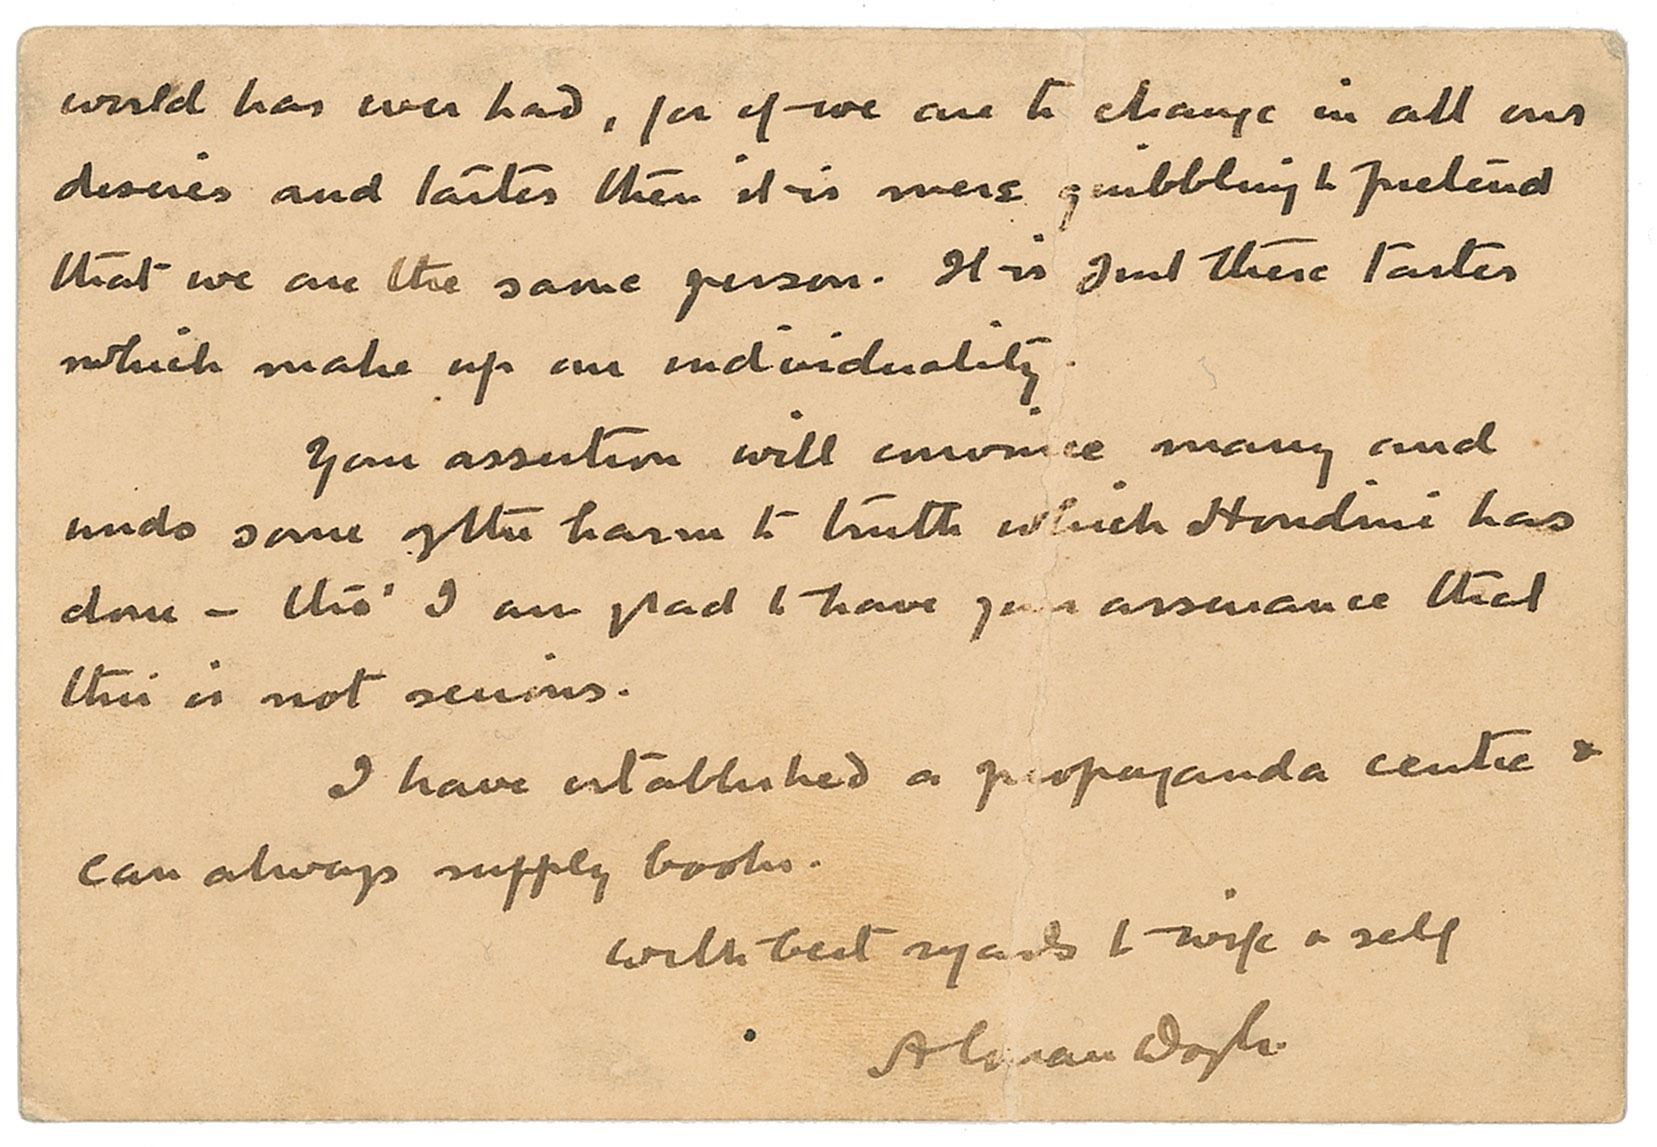 world has ever had, for if we are to change in all our
desires and tastes then it is mere quibbling to pretend
that we are the same person. It is just these tastes
which make up our individuality.
Your assertion will convince many and
undo some of the harm to truth which Houdini has
done – tho' I am glad to have your assurance that
this is not serious.
I have established a propaganda centre &
can always supply books.
With best regards to wife & self
A Conan Doyle.